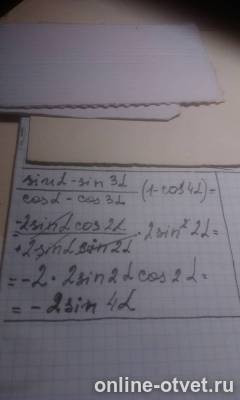 sinα - sin 3α
cosα - cos 3α (1 - cos 4α) =
= -2sinα cos2α
+2 sinα sin 2α · 2sin² 2α =
= -2 · 2sin2α cos2α =
= -2sin 4α
online-otvet.ru